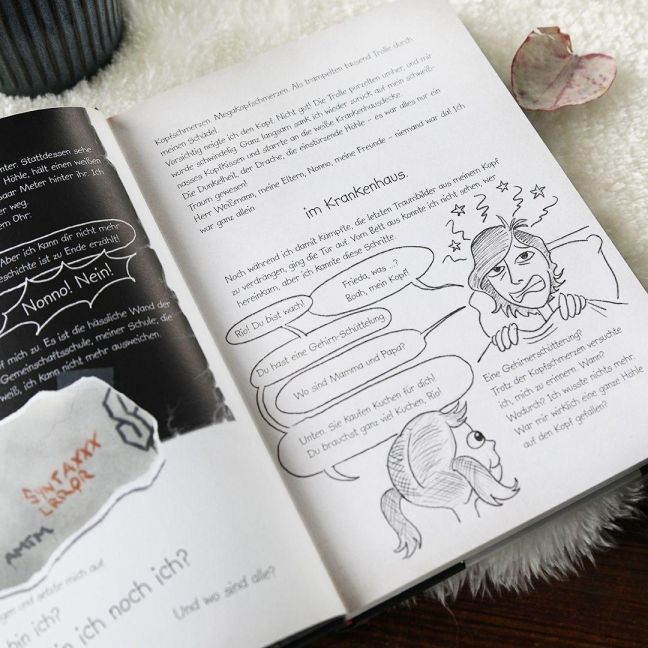 nter. Stattdessen sehe
Höhle, hält einen weißen
aar Meter hinter ihr. Ich
er weg.
em Ohr:
Aber ich kann dir nicht mehr
eschichte ist zu Ende erzählt!
Nonno! Nein!
f mich zu. Es ist die hässliche Wand der
Gemeinschaftsschule, meiner Schule, die
weiß, ich kann nicht mehr ausweichen.
SINTAXXX
LRRPR
AMTM
gen und
mich auf
bin ich?
in ich noch ich?
Und wo sind alle?
Kopfschmerzen. Megakopfschmerzen. Als trampelten tausend Trolle durch
meinen Schädel.
Vorsichtig neigte ich den Kopf. Nicht gut! Die Trolle purzelten umher, und mir
wurde schwindelig. Ganz langsam sank ich wieder zurück auf mein schweiß-
nasses Kopfkissen und starrte an die weiße Krankenhausdecke.
Die Dunkelheit, der Drache, die einstürzende Höhle – es war alles nur ein
Traum gewesen!
Herr Weißmann, meine Eltern, Nonno, meine Freunde – niemand war da! Ich
war ganz allein
im Krankenhaus.
Noch während ich damit kämpfte, die letzten Traumbilder aus meinem Kopf
zu verdrängen, ging die Tür auf. Vom Bett aus konnte ich nicht sehen, wer
hereinkam, aber ich kannte diese Schritte.
Rio! Du bist wach!
Frieda, was ...?
Boah, mein Kopf!
Du hast eine Gehirn-Schüttelung.
Wo sind Mamma und Papa?
Unten. Sie kaufen Kuchen für dich!
Du brauchst ganz viel Kuchen, Rio!
Eine Gehirnerschütterung?
Trotz der Kopfschmerzen versuchte
ich, mich zu erinnern. Wann?
Wodurch? Ich wusste nichts mehr.
War mir wirklich eine ganze Höhle
auf den Kopf gefallen?